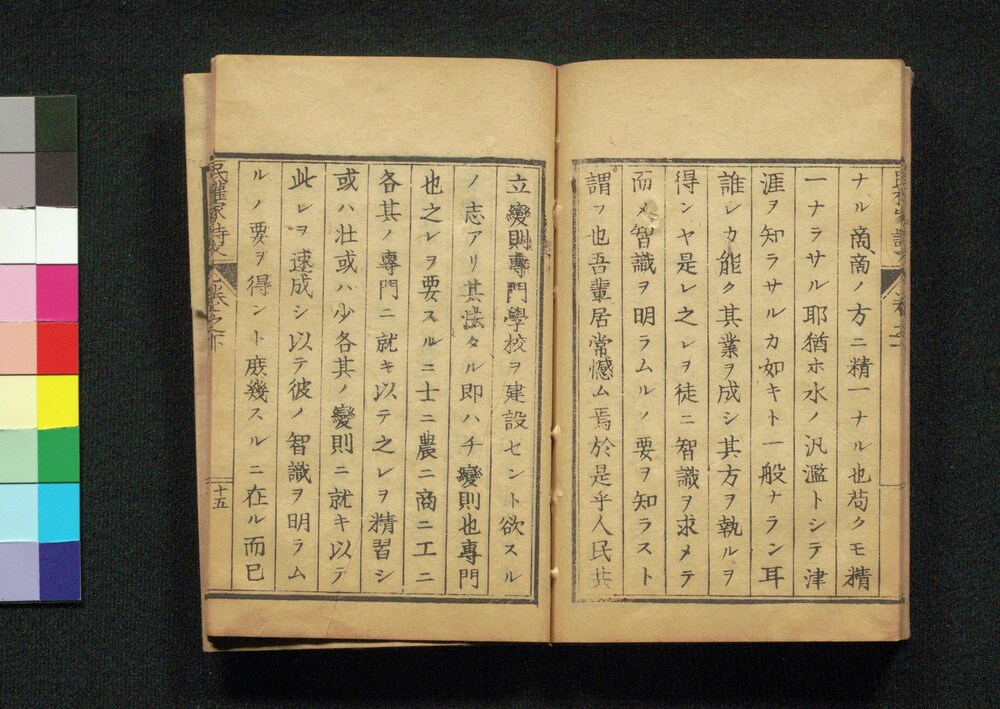 ナル商商ノ方ニ精一ナル也苟クモ精
一ナラサル耶猶ホ水ノ汎濫トシテ津
涯ヲ知ラサルカ如キト一般ナラン耳
誰レカ能ク其業ヲ成シ其方ヲ執ルヲ
得ンヤ是レ之レヲ徒ニ智識ヲ求メテ
而メ智識ヲ明ラムルノ要ヲ知ラスト
謂フ也吾輩居常憾ム焉於是乎人民共
立變則專門學校ヲ建設セント欲スル
ノ志アリ其法タル即ハチ變則也專門
也之レヲ要スルニ士ニ農ニ商ニ工ニ
各其ノ專門ニ就キ以テ之レヲ精習シ
或ハ壮或ハ少各其ノ變則ニ就キ以テ
此レヲ速成シ以テ彼ノ智識ヲ明ラム
ルノ要ヲ得ント庶幾スルニ在ル而已
民權家
卷之下
十五